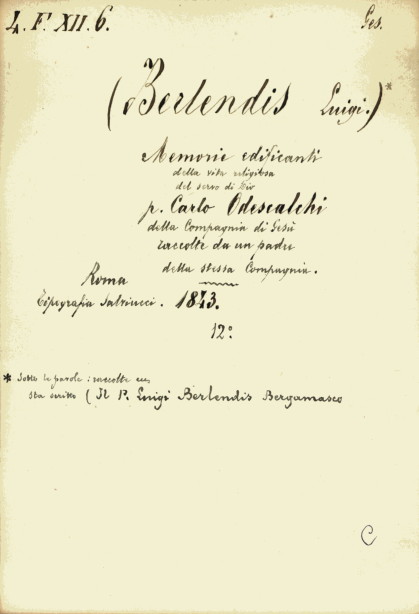 4. F. XII. 6.
Ges.
(Berlendis Luigi.)*
Memorie edificanti
della vita religiosa
del servo di Dio
p. Carlo Odescalchi
della Compagnia di Gesù
raccolte da un padre
della stessa Compagnia.
Roma
Tipografia Salviucci. 1843.
12°
* Sotto le parole: raccolte
sta scritto (Il P. Luigi Berlendis Bergamasco
C